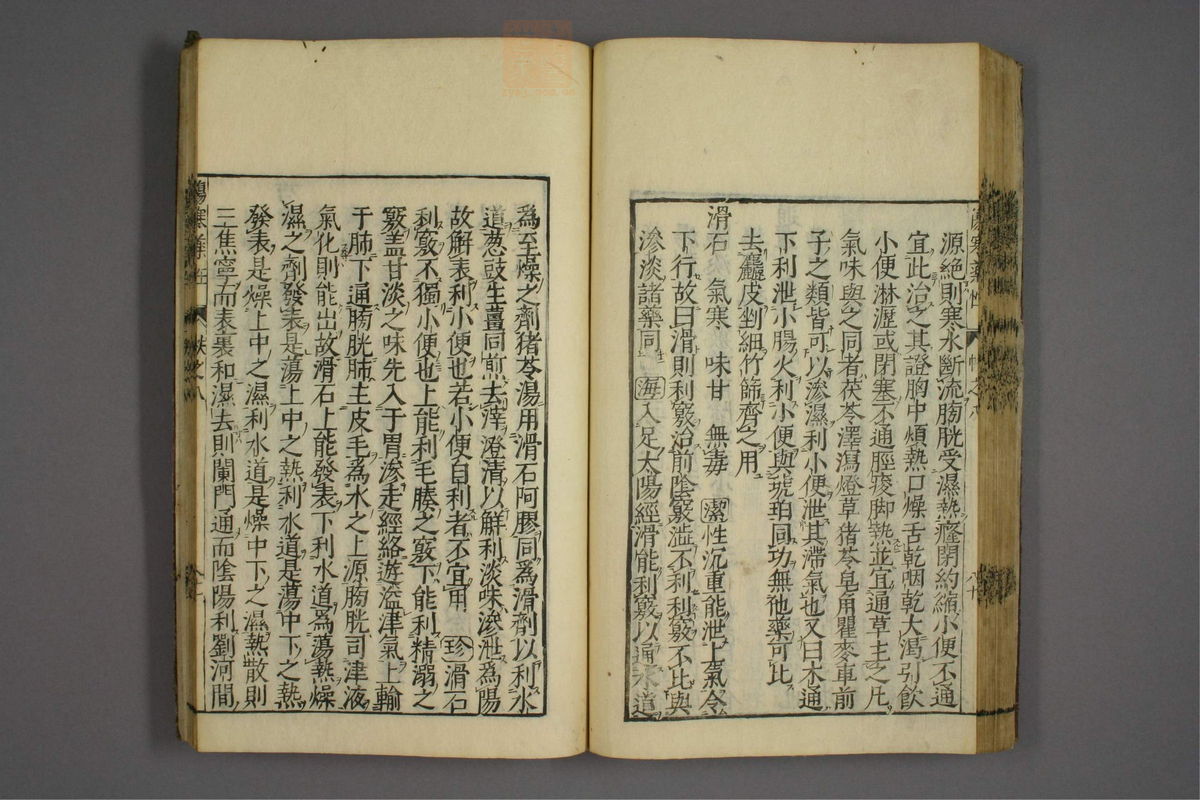 源絕則寒水斷流膀胱受濕熱癃閉約縮小便不通
宜此治之其證胸中煩熱口燥舌乾咽乾大渴引飲
小便淋瀝或閉塞不通脛痠脚熱並宜通草主之凡
氣味與之同者茯苓澤瀉燈草猪苓皂角瞿麥車前
子之類皆可以滲濕利小便泄其滯氣也又曰木通
下利泄小腸火利小便與琥珀同功無他藥可比
去麤皮剉細竹篩齊之用
滑石 氣寒 味甘 無毒 潔性沉重能泄上氣令
下行故曰滑則利竅治前陰竅澁不利利竅不比與
滲淡諸藥同 海入足太陽經滑能利竅以通水道
為至燥之劑猪苓湯用滑石阿膠同為滑劑以利水
道葱鼓生薑同煎去滓澄清以解利淡味滲泄為陽
故解表利小便也若小便自利者不宜用 珍滑石
利竅不獨小便也上能利毛腠之竅下能利精溺之
竅盖甘淡之味先入于胃滲走經絡遊溢津氣上輸
于肺下通膀胱肺主皮毛為水之上源膀胱司津液
氣化則能出故滑石上能發表下利水道為蕩熱燥
濕之劑發表是蕩上中之熱利水道是蕩中下之熱
發表是燥上中之濕利水道是燥中下之濕熱散則
三焦寧而表裏和濕去則闌門通而陰陽利劉河間